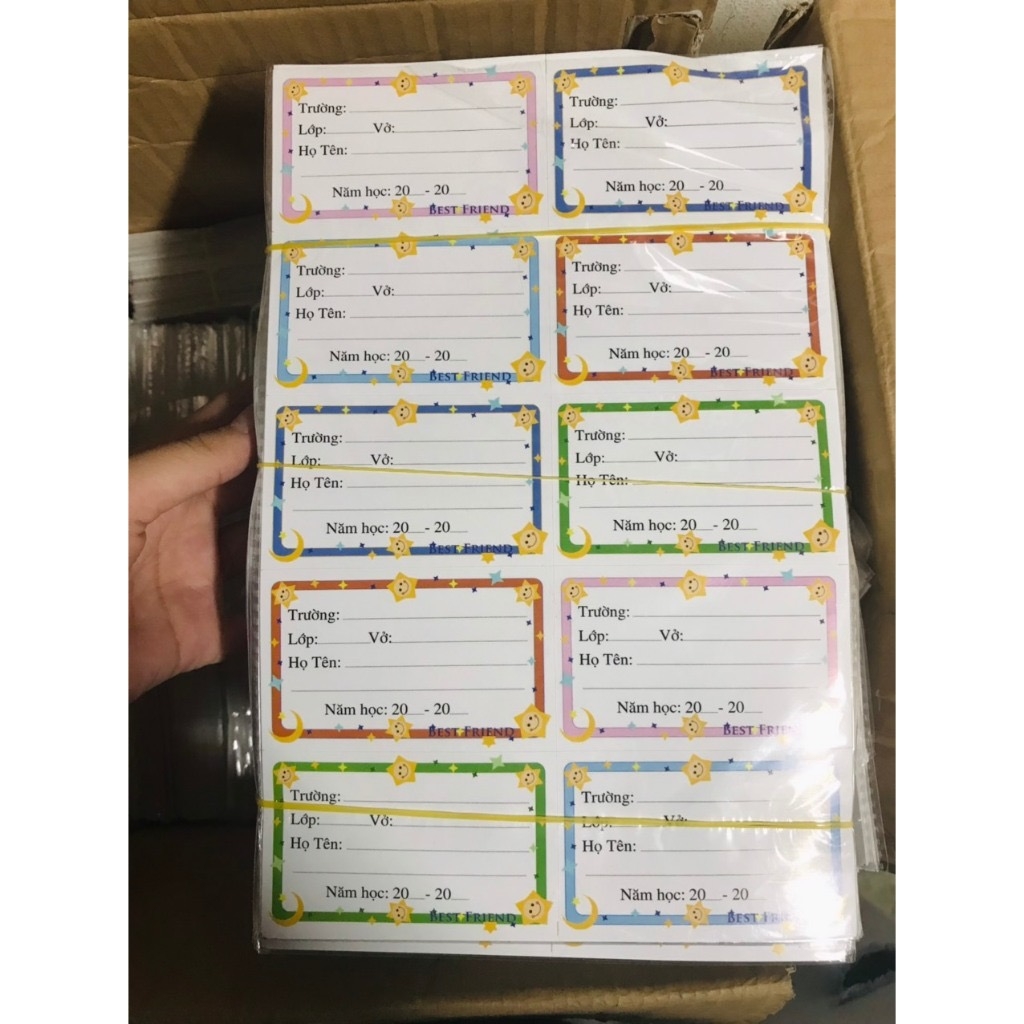 Trường:
Lớp: Vở:
Họ Tên:
Năm học: 20 - 20
BEST FRIEND
Trường:
Lớp: Vở:
Họ Tên:
Năm học: 20 - 20
BEST FRIEND
Trường:
Lớp: Vở:
Họ Tên:
Năm học: 20 - 20
BEST FRIEND
Trường:
Lớp: Vở:
Họ Tên:
Năm học: 20 - 20
BEST FRIEND
Trường:
Lớp: Vở:
Họ Tên:
Năm học: 20 - 20
BEST FRIEND
Trường:
Lớp: Vở:
Họ Tên:
Năm học: 20 - 20
BEST FRIEND
Trường:
Lớp: Vở:
Họ Tên:
Năm học: 20 - 20
BEST FRIEND
Trường:
Lớp: Vở:
Họ Tên:
Năm học: 20 - 20
BEST
Trường:
Lớp: Vở:
Họ Tên:
Năm học: 20 - 20
BEST FRIEND
Trường:
Lớp: Vở:
Họ Tên:
Năm học: 20 - 20
BEST